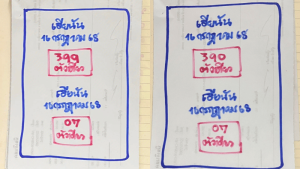 เฮียนัน
16 กรกฎาคม 68
390
ตัวเดียว
เฮียนัน
16 กรกฎาคม 68
07
ตัวเดียว
เฮียนัน
16 กรกฎาคม 68
390
ตัวเดียว
เฮียนัน
16 กรกฎาคม 68
07
ตัวเดียว